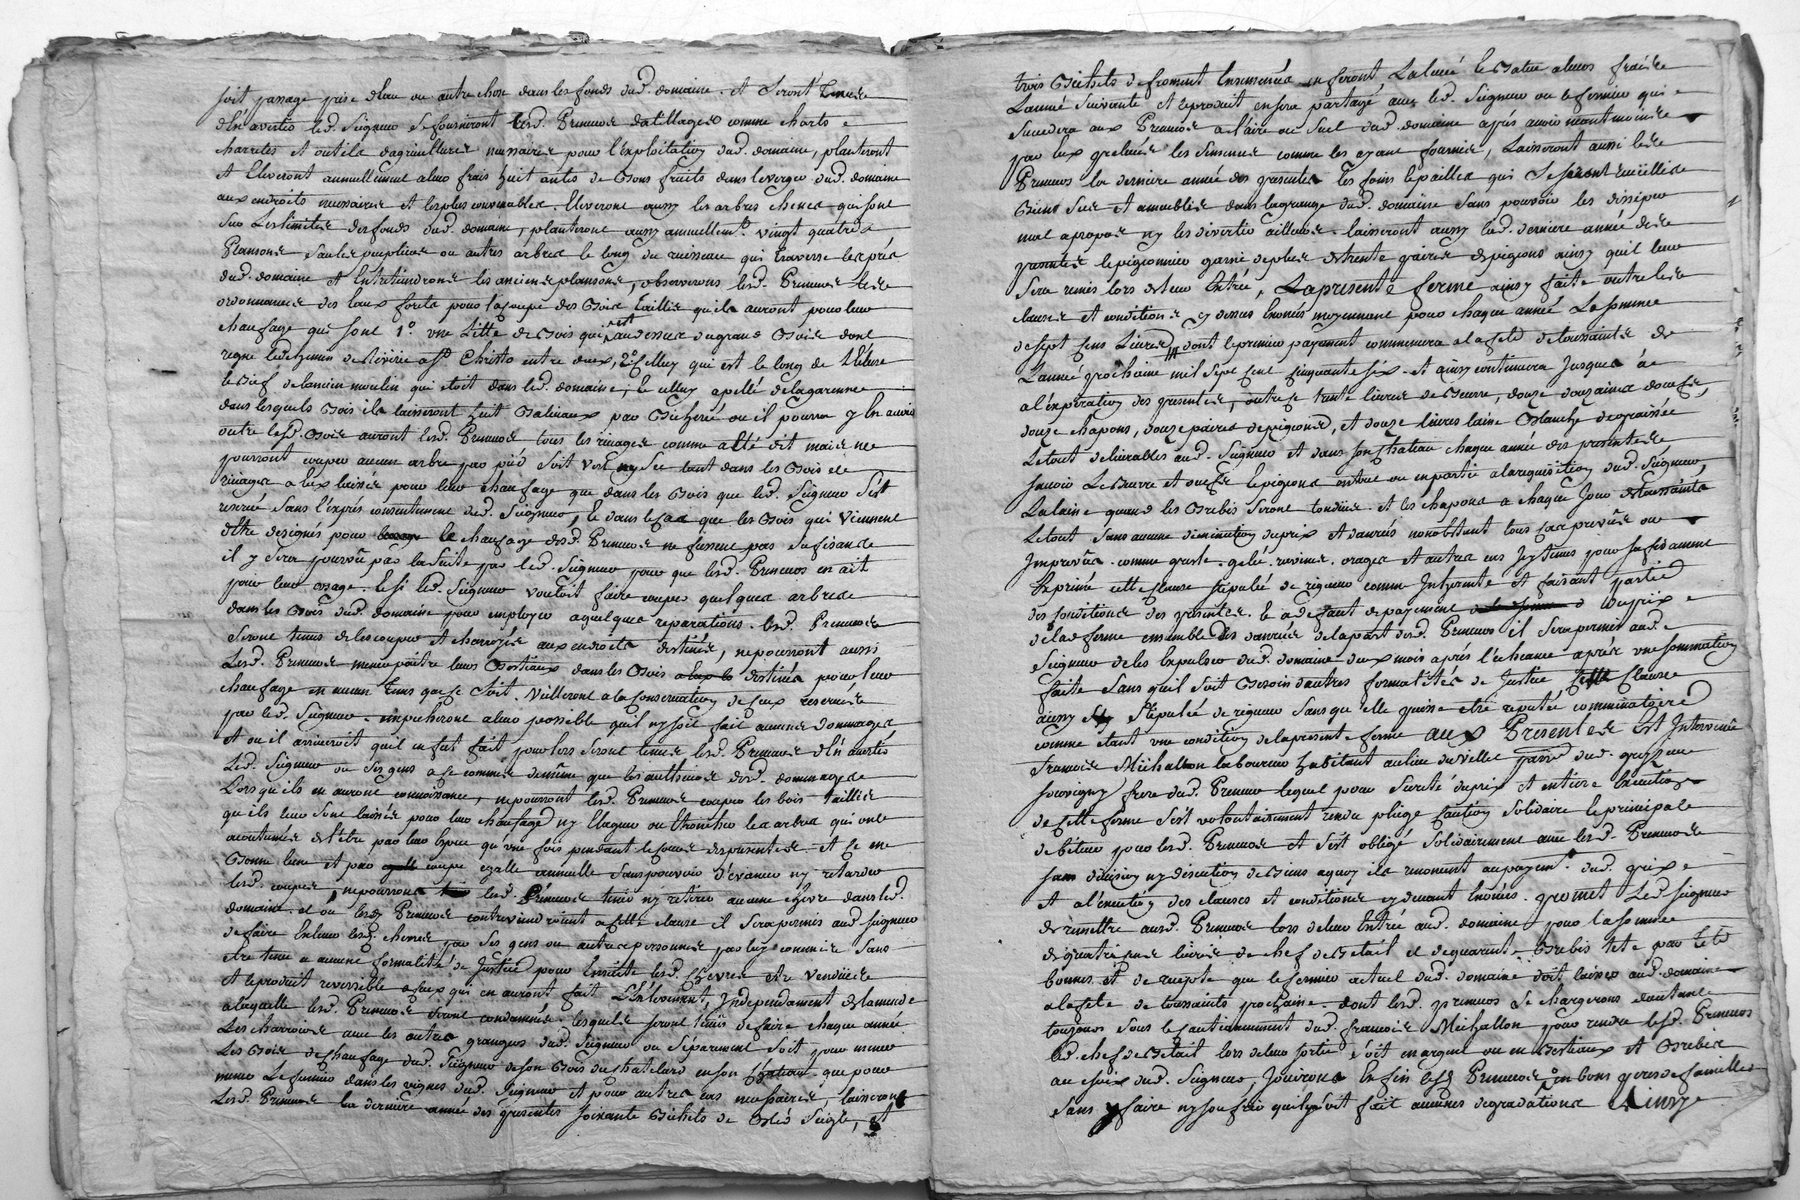 soit passage prise d'eau ou autre chose dans les fonds dud. domaine. et seront tenus
d'en avertir led. Seigneur se fourniront lesd. Preneurs d'atillages comme charts
charretes et outils d'agricultures necessaires pour l'exploitation dud. domaine, planteront
et Eleveront annuellement a leurs frais huit antes de bons fruits dans le verger dud. domaine
aux endroits necessaires et les plus convenables. Eleveront aussy les arbres chenes qui sont
sur Les limites des fonds dud. domaine, planteront aussy annuellemt. vingt quatre
Plansons saules peupliers ou autres arbres le long du ruisseau qui traverse les prés
dud. domaine et Entretiendront les anciens plansons, observeront lesd. Preneurs les
ordonnances des Eaux forets pour la coupe des Bois Taillis qu'ils auront pour leur
chaufage qui sont 1°. une Litte de Bois qui est au dessus du grand Bois dont
regne le chemin de a St. Christo entre deux, 2°. Celluy qui est le long de
le Bief de l'ancien moulin qui etoit dans led. domaine, Et celluy apellé de la garenne
dans lesquels Bois ils laisseront huit Baliveaux par Bicherée ou il pourra y En avoir
outre lesd. Bois auront lesd. Preneurs tous les rivages comme a Eté dit mais ne
pourront couper aucun arbre par pied soit vert ny sec tant dans les Bois et
rivages a Eux laissés pour leur chaufage que dans les Bois que led. Seigneur s'est
reservé sans l'exprès consentement dud. Seigneur, Et dans le cas que les Bois qui viennent
d'Etre designés pour le chaufage desd. Preneurs ne fussent pas sufisans
il y sera pourvû par la suite par led. Seigneur pour que lesd. Preneurs en ait
pour leur usage. Et si led. Seigneur vouloit faire couper quelques arbres
dans les Bois dud. domaine pour employer a quelques reparations. lesd. Preneurs
seront tenus de les couper et charroyer aux endroits destinés, ne pourront aussi
Lesd. Preneurs mener paitre leurs Bestiaux dans les Bois destinés pour leur
chaufage en aucun Tems que ce soit. Veilleront a la Conservation de ceux reservés
par led. Seigneur. empecheront a leur possible qu'il n'y soit fait aucuns dommages
et ou il arriveroit qu'il en fut fait pour lors seront tenus lesd. Preneurs d'En avertir
Led. Seigneur ou ses gens a ce commis de même que les autheurs desd. dommages
Lorsqu'ils en auront connoissance, ne pourront lesd. Preneurs couper les bois Taillis
qu'ils leur sont laissés pour leur chaufage ny Elaguer ou Ebrancher les arbres qui ont
acoutumés d'Etre par leur Espece qu'une fois pendant le cours des presentes. et ce en
Bonne lune et par coupe egalle annuelle sans pouvoir d'avancer ny retarder
lesd. coupes, ne pourront lesd. Preneurs tenir ny retirer aucune chevre dans led.
domaine. et ou lesd. Preneurs contreviendroient a cette clause il sera permis aud. Seigneur
de faire Enlever lesd. chevres par ses gens ou autres personnes par luy commis sans
etre tenu a aucune formalité de Justice pour Ensuite lesd. chevres etre vendues
et le produit reversible a ceux qui en auront fait L'Enlevement, Independament de l'amende
a laquelle lesd. Preneurs seront condamnés. lesquels seront tenus de faire chaque année
Les charrois avec les autres grangers dud. Seigneur ou séparement soit pour mener
Les Bois de chaufage dud. Seigneur de son Bois du chatelard en son chateau que pour
mener Le fumier dans les vignes dud. Seigneur et pour autres cas necessaires, laisseront
Lesd. Preneurs la derniere année des presentes soixante Bichets de Bled seigle, et
trois Bichets de froment Ensemencés en feront La levée le Batre a leurs frais
L'année suivante et le produit en sera partagé avec led. Seigneur ou le fermier qui
succedera aux Preneurs a l'aire ou suel dud. domaine après avoir neantmoins
par Eux prelevés les semences comme les ayant fournies, Laisseront aussi lesd.
Preneurs la derniere année des presentes les foins et pailles qui se seront cueillis
Biens secs et ameublés dans la grange dud. domaine sans pouvoir les dissiper
mal a propos ny les divertir ailleurs. laisseront aussy lad. derniere année des
presentes le pigeonnier garni de plus de trente paires de pigeons ainsy qu'il leur
sera remis lors de leur Entrée, La presente ferme ainsy faite outre les
clauses et conditions cy dessus Enoncés moyennant pour chaque année La somme
de sept Cens Livres dont le premier payement commencera a la fete de toussaints de
L'année prochaine mil sept cent cinquante six. et ainsy continuera Jusques a
a l'expiration des presentes, outre ce trente livres de Beurre, douze douzaines d'oeufs,
douze chapons, douze paires de pigeons, et douze livres laine Blanche degraissée
Le tout delivrables aud. Seigneur et dans son Chateau chaque année des presentes
scavoir Le Beurre et oeufs Et pigeons en tout ou en partie a la requisition dud. Seigneur,
La laine quand les Brebis seront tondues. et les chapons a chaque Jour de toussaints
Le tout sans aucune diminution du prix et danrés nonobstant tous cas prevûs ou
Imprevûs. comme grele. gelée. ravines. orages et autres cas fortuits
Exprimé cette clause stipulée de rigueur comme Integrante et faisant partie
des Conditions des presentes. Et a defaut de payement du prix
de lad. ferme ensemble des danrées de la part desd. Preneurs il sera permis aud.
Seigneur de les Expulser dud. domaine deux mois après l'echeance après une sommation
faite sans qu'il soit Besoin d'autres formalités de Justice Clause
ainsy stipulée de rigueur sans qu'elle puisse etre reputée comminatoire
comme etant une condition de la presente ferme aux Presentes est Intervenû
Francois Michallon laboureur habitant au lieu du villet parr. dud. grezieux
souvigny frere dud. Preneur lequel pour sureté du prix et entiere Execution
de cette ferme s'est volontairement rendu pleige Caution solidaire et principale
debiteur pour lesd. Preneurs et s'est obligé solidairement avec lesd. Preneurs
sans division ny discution de Biens a quoy ils renoncent au payemt. dud. prix
et a l'execution des clauses et conditions cy devant Enoncés. promet Led. Seigneur
de remettre ausd. Preneurs lors de leur Entrée aud. domaine pour la somme
de quatre cens livres de chef de Betail et de quarente Brebis tete par tete
bonnes et de recepte que le fermier actuel dud. domaine doit laisser aud. domaine
a la fete de toussaints prochaine. dont lesd. preneurs se chargerons d'autant
toujours sous le Cautionnement dud. Francois Michallon pour rendre lesd. Preneurs
led. chef de Betail lors de leur sortie soit en argent ou en Bestiaux et Brebis
au choix dud. Seigneur, Jouirons En fin lesd. Preneurs en bons peres de familles
sans y faire ny soufrir qu'il y soit fait aucunes degradations